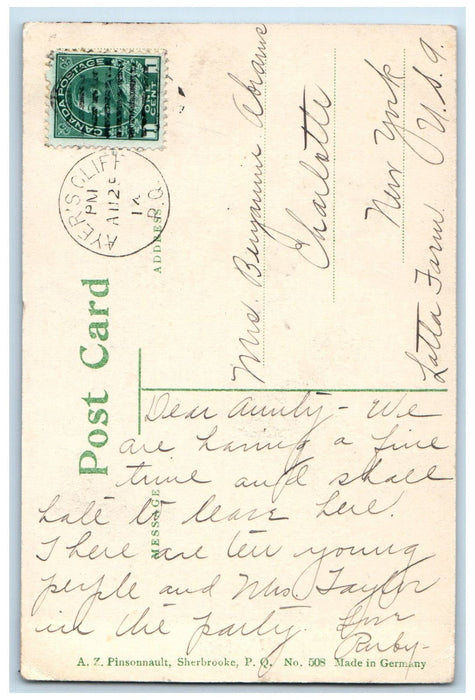 CANADA POSTAGE
1 ONE CENT 1
AYER'S CLIFF
PM
AU 29
14
P.Q.
Post Card
ADDRESS
Mrs Benjamin Abrams
Charlotte
New York
Latta Farm U.S.A.
MESSAGE
Dear Aunty - We
are having a fine
time and shall
hate to leave here.
There are ten young
people and Mrs Taylor
in the party. Love
Ruby-
A. Z. Pinsonnault, Sherbrooke, P. Q. No. 508 Made in Germany